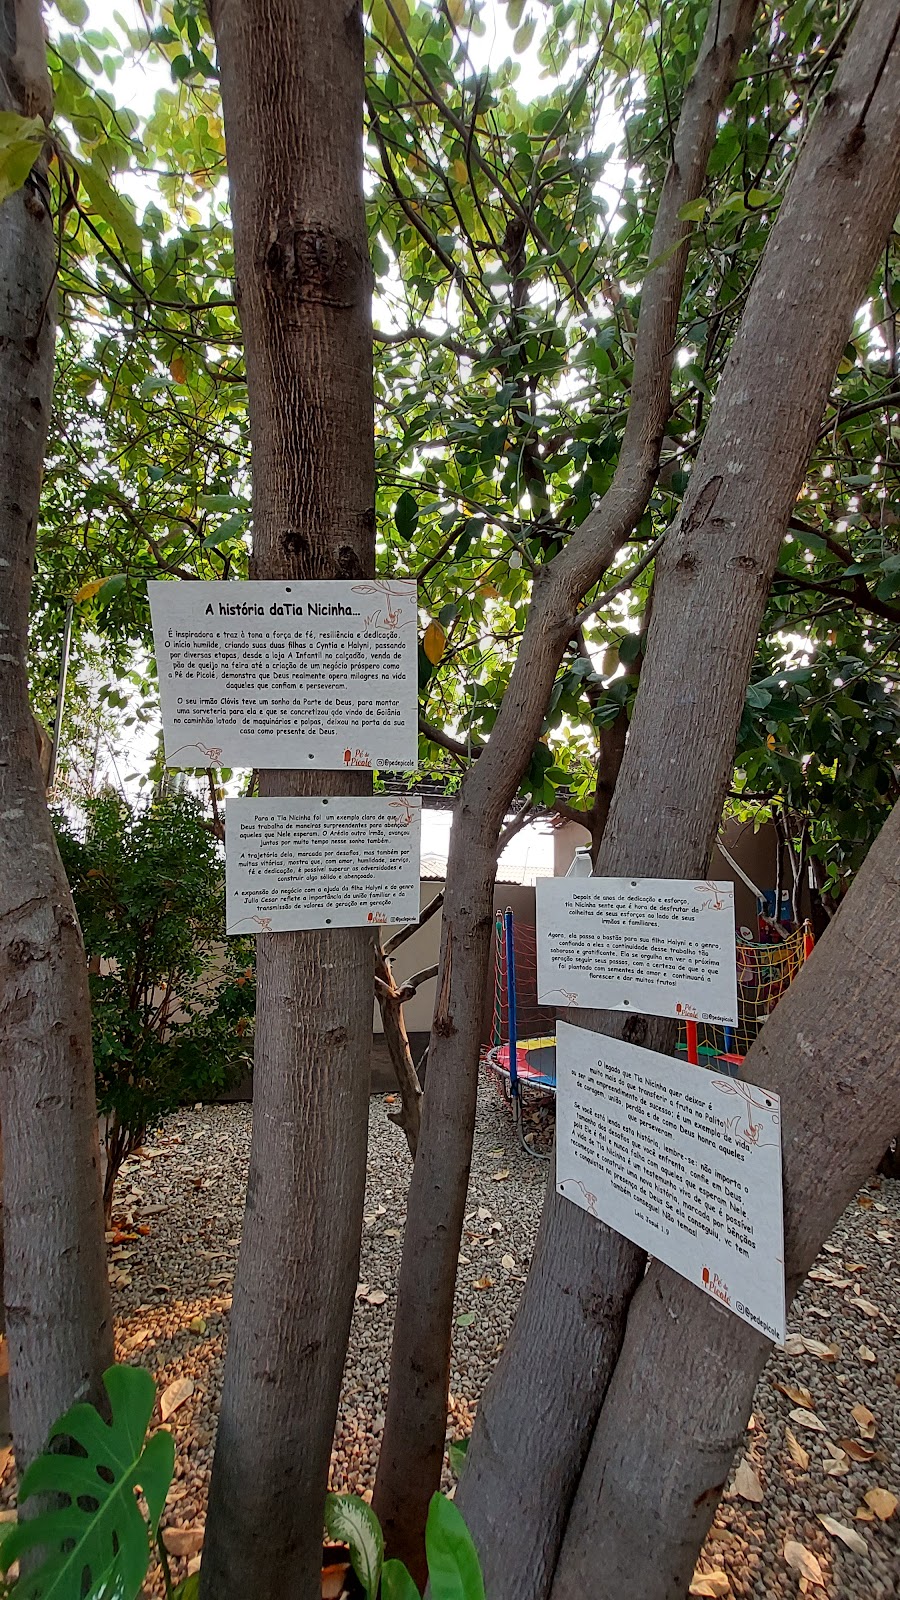 A história daTia Nicinha...
É inspiradora e traz à tona a força de fé, resiliência e dedicação.
O início humilde, criando suas duas filhas a Cyntia e Halyni, passando
por diversas etapas, desde a loja A Infantil no calçadão, venda de
pão de queijo na feira até a criação de um negócio próspero como
a Pé de Picolé, demonstra que Deus realmente opera milagres na vida
daqueles que confiam e perseveram.
O seu irmão Clóvis teve um sonho da Parte de Deus, para montar
uma sorveteria para ela e que se concretizou qdo vindo de Goiânia
no caminhão lotado de maquinários e polpas, deixou na porta da sua
casa como presente de Deus.
Pé de
Picolé
@pedepicole
Para a Tia Nicinha foi um exemplo claro de que
Deus trabalha de maneiras surpreendentes para abençoar
aqueles que Nele esperam. O Arédio outro irmão, avançou
juntos por muito tempo nesse sonho também.
A trajetória dela, marcada por desafios, mas também por
muitas vitórias, mostra que, com amor, humildade, serviço,
fé e dedicação, é possível superar as adversidades e
construir algo sólido e abençoado.
A expansão do negócio com a ajuda da filha Halyni e do genro
Julio Cesar reflete a importância da união familiar e da
transmissão de valores de geração em geração.
Pé de
Picolé
@pedepicole
Depois de anos de dedicação e esforço,
tia Nicinha sente que é hora de desfrutar da
colheitas de seus esforços ao lado de seus
irmãos e familiares.
Agora, ela passa o bastão para sua filha Halyni e o genro,
confiando a eles a continuidade desse trabalho tão
saboroso e gratificante. Ela se orgulha em ver a próxima
geração seguir seus passos, com a certeza de que o que
foi plantado com sementes de amor e continuará a
florescer e dar muitos frutos!
Pé de
Picolé
@pedepicole
O legado que Tia Nicinha quer deixar é
muito mais do que transferir a fruta no Palito
ou ser um empreendimento de sucesso; é um exemplo de vida,
de coragem, união, perdão e de como Deus honra aqueles
que perseveram.
Se você está lendo esta história , lembre-se: não importa o
tamanho dos desafios que você enfrenta; confie em Deus
pois Ele é fiel e nunca falha com aqueles que esperam Nele.
A vida de Tia Nicinha é um testemunho vivo de que é possível
recomeçar e construir uma nova história, marcada por bênçãos
e conquistas na presença de Deus Se ela conseguiu, vc tem
também consegue! Não temas!
Leia Josué 1.9
Pé de
Picolé
@pedepicole